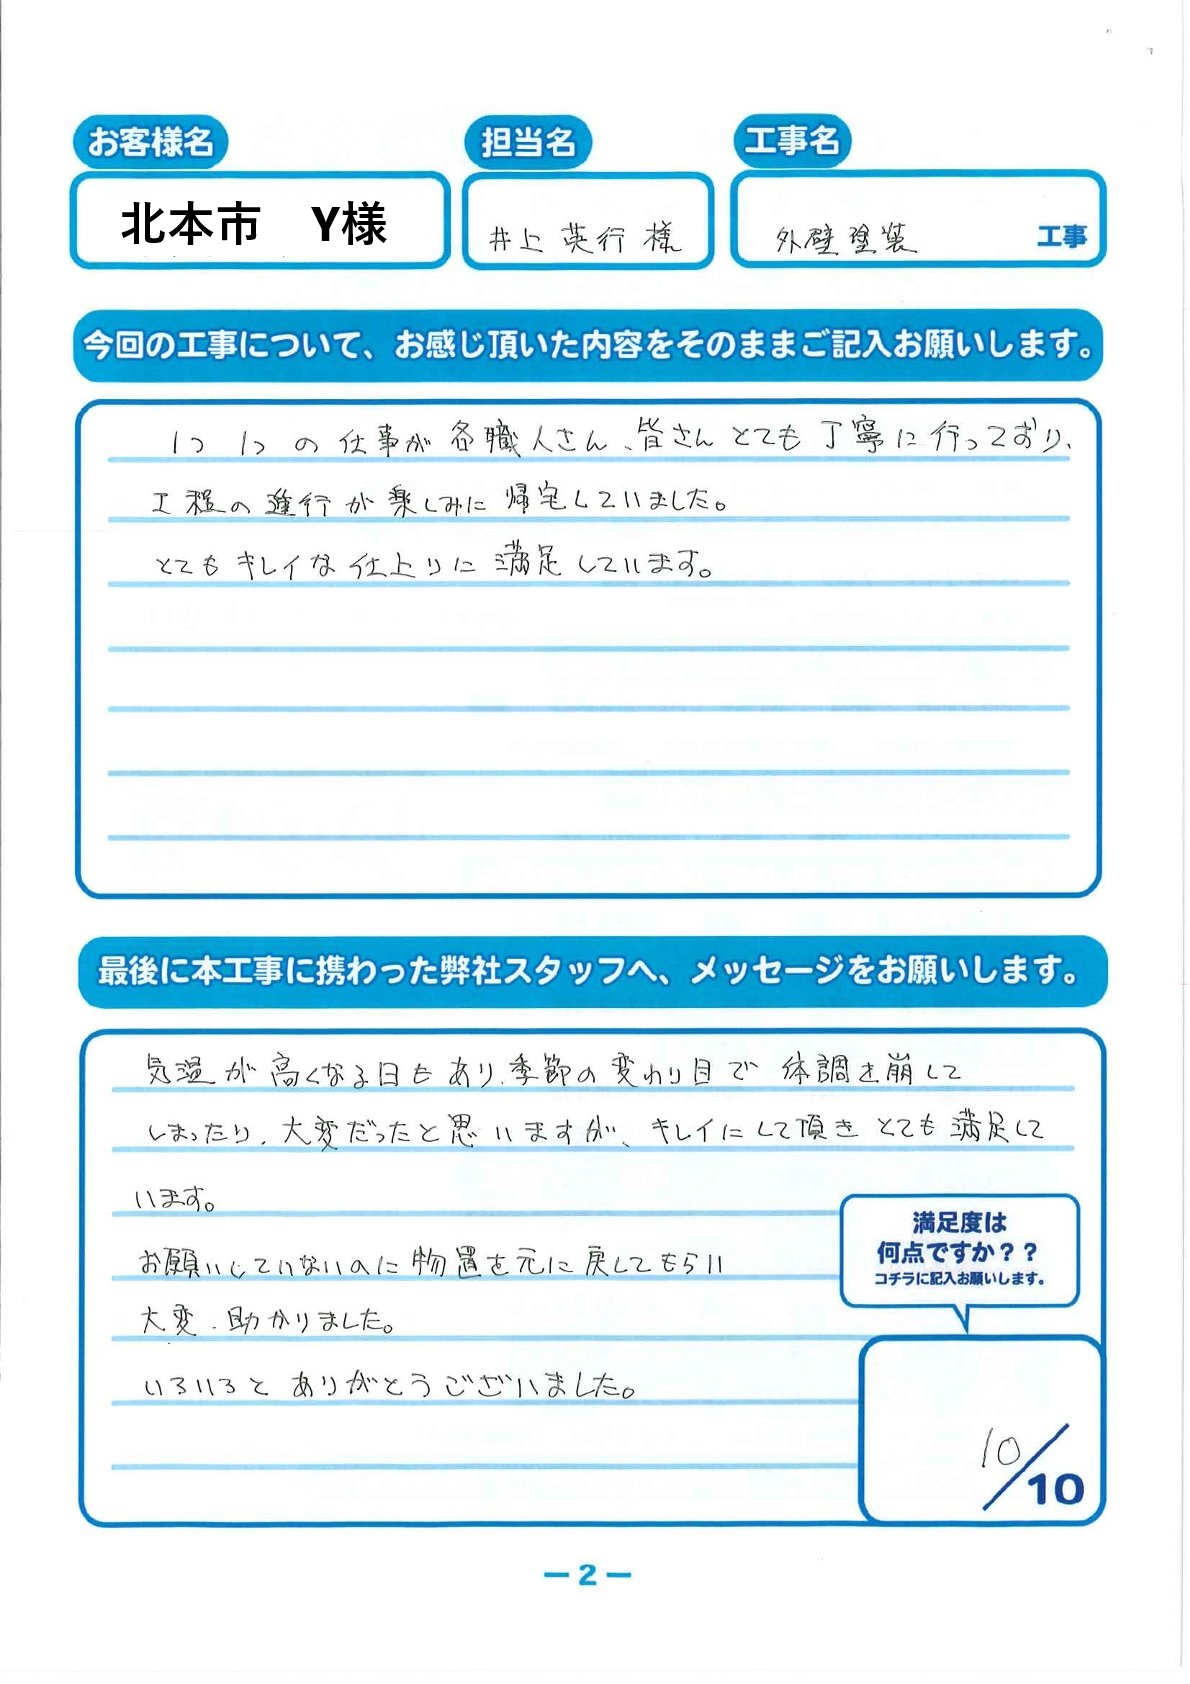 お客様名
担当名
工事名
北本市　Y様
井上 英行 様
外壁塗装 工事
今回の工事について、お感じ頂いた内容をそのままご記入お願いします。
1つ1つの仕事が各職人さん、皆さんとても丁寧に行っており、
工程の進行が楽しみに帰宅していました。
とてもキレイな仕上りに満足しています。
最後に本工事に携わった弊社スタッフへ、メッセージをお願いします。
気温が高くなる日もあり、季節の変わり目で体調を崩して
しまったり、大変だったと思いますが、キレイにして頂きとても満足して
います。
お願いしていないのに物置を元に戻してもらい
大変、助かりました。
いろいろとありがとうございました。
満足度は
何点ですか？？
コチラに記入お願いします。
10/10
－2－